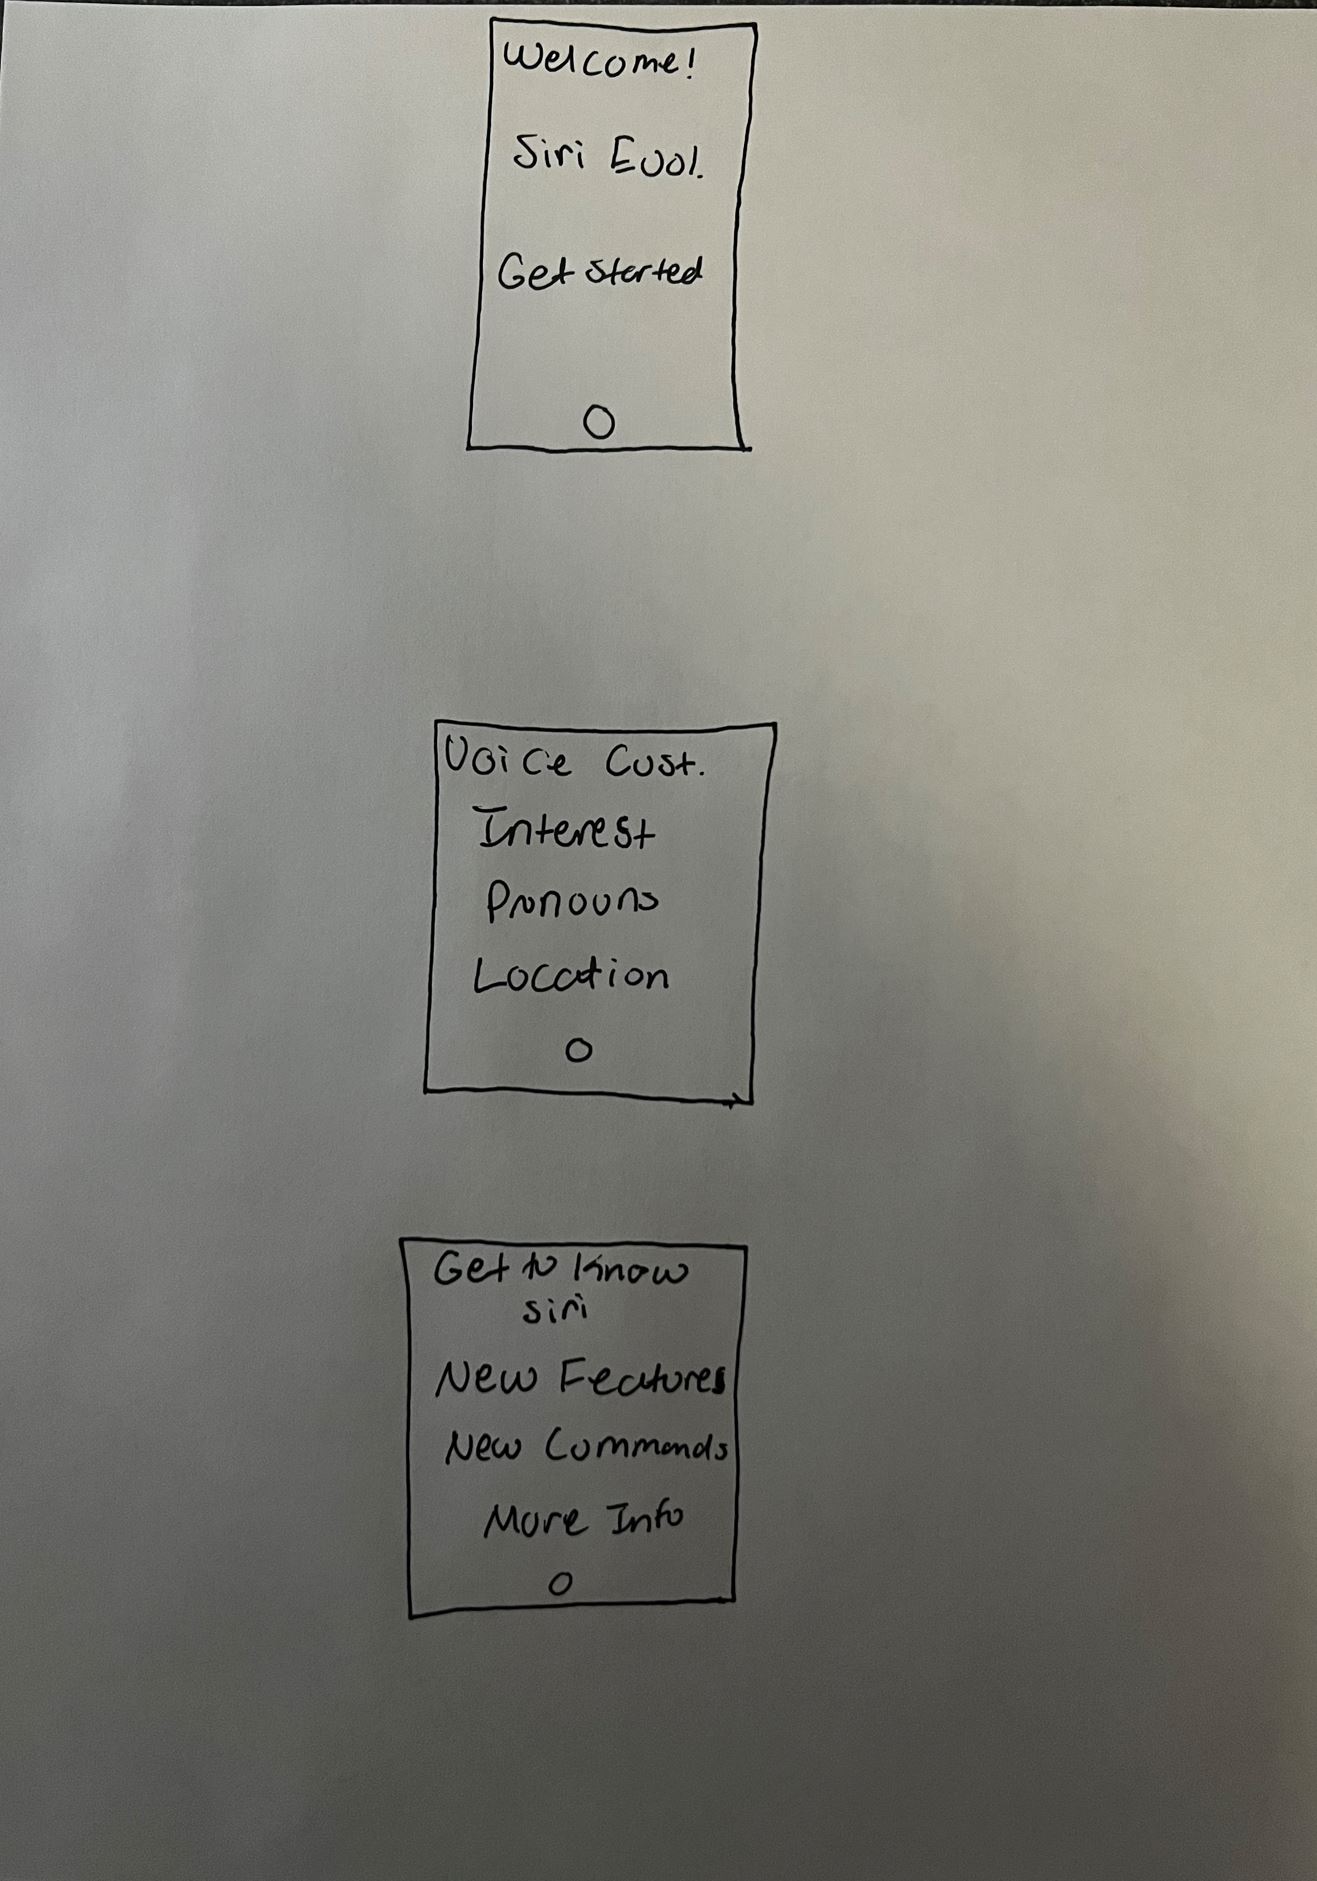 Welcome!
Siri Evol.
Get started
Voice Cust.
Interest
Pronouns
Location
Get to know
siri
New Features
New Commands
More Info